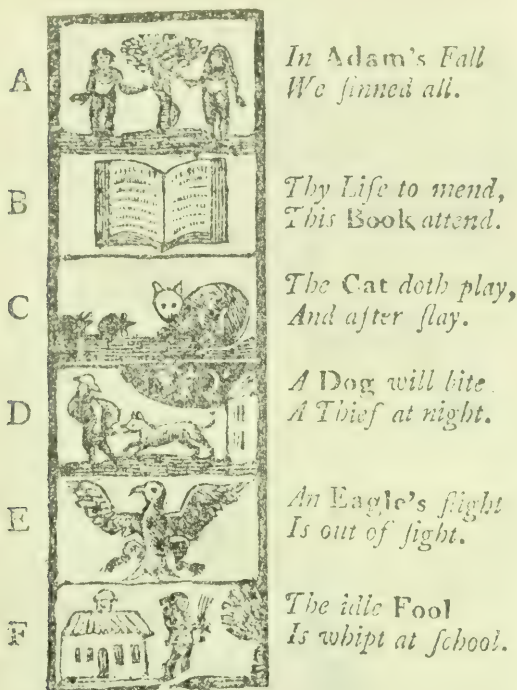 A
In Adam's Fall
We ſinned all.
B
Thy Life to mend,
This Book attend.
C
The Cat doth play,
And after ſlay.
D
A Dog will bite
A Thief at night.
E
An Eagle's flight
Is out of ſight.
F
The idle Fool
Is whipt at ſchool.